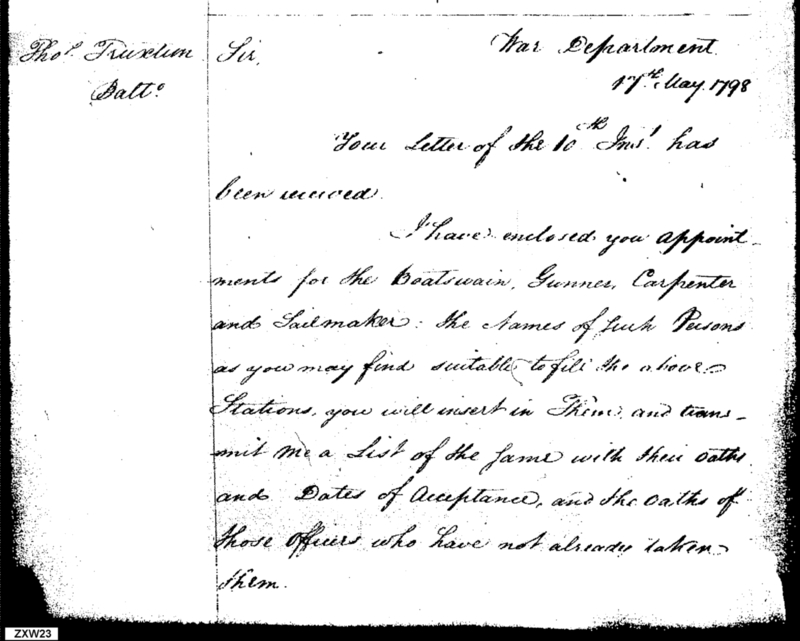 Thos. Truxtun
Balto.
Sir,
War Department
17th. May 1798
Your Letter of the 10th Inst. has
been received.
I have enclosed you appoint-
ments for the Boatswain, Gunner, Carpenter
and Sailmaker: the Names of such Persons
as you may find suitable to fill the above
Stations, you will insert in Them and trans-
mit me a List of the same with their oaths
and Dates of Acceptance, and the oaths of
those officers who have not already taken
them.
ZXW23